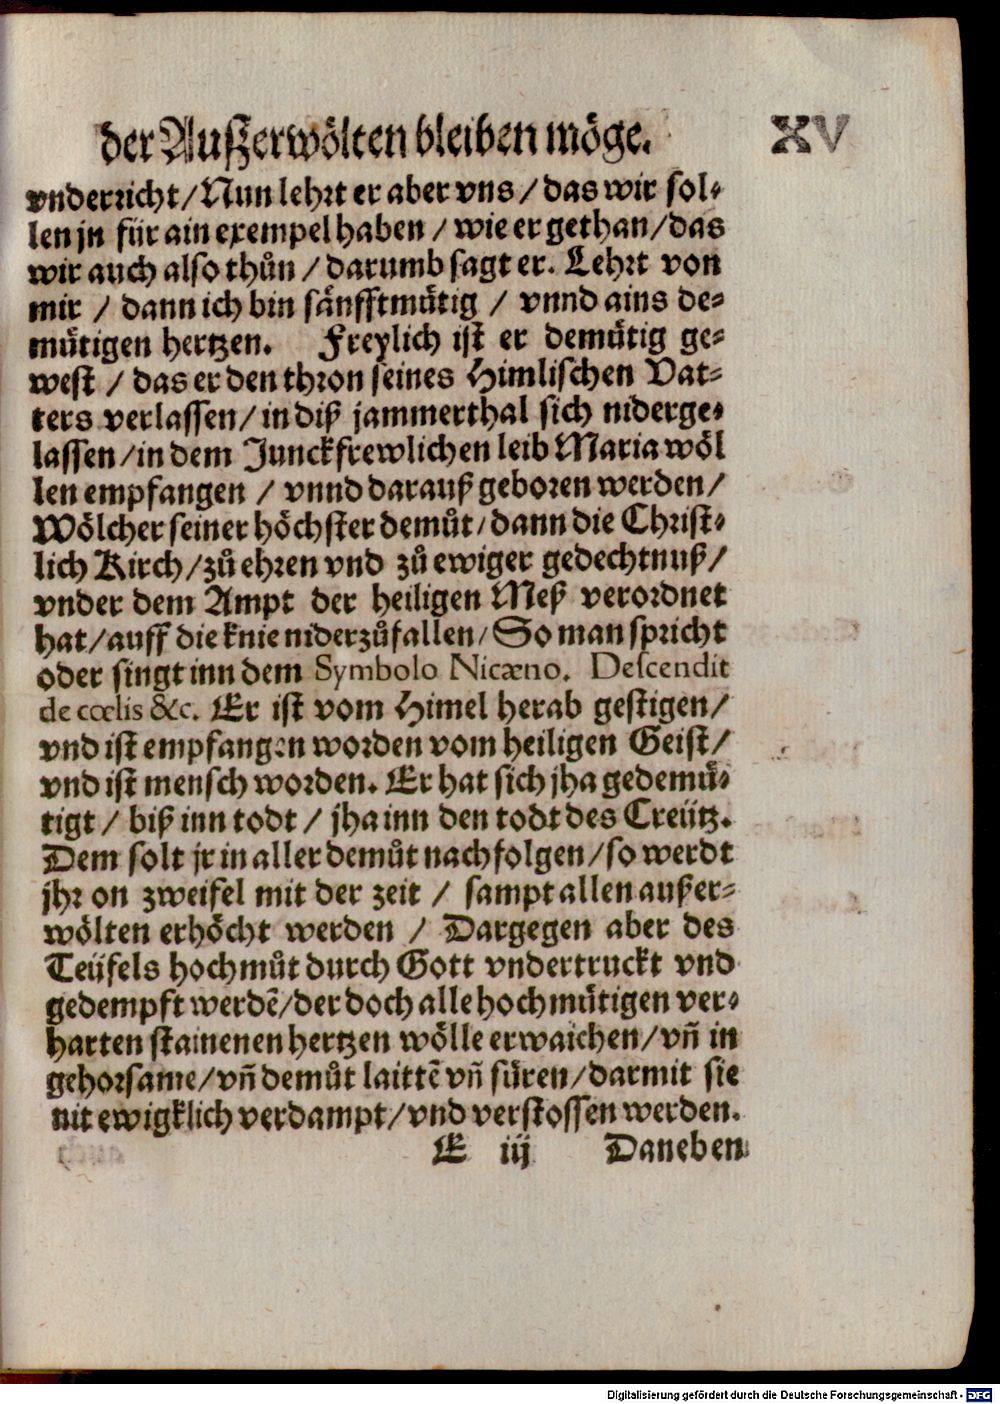 der Auſzerwölten bleiben möge. XV
vnderricht / Nun lehrt er aber vns / das wir sol⸗
len jn für ain exempel haben / wie er gethan / das
wir auch also thůn / darumb sagt er. Lehrt von
mir / dann ich bin sänfftmütig / vnnd ains de⸗
mütigen hertzen. Freylich ist er demütig ge⸗
west / das er den thron seines Himlischen Vat⸗
ters verlassen / in diß jammerthal sich niderge⸗
lassen / in dem Junckfrewlichen leib Maria wöl
len empfangen / vnnd darauß geboren werden /
Wölcher seiner höchster demůt / dann die Christ⸗
lich Kirch / zů ehren vnd zů ewiger gedechtnuß /
vnder dem Ampt der heiligen Meß verordnet
hat / auff die knie niderzůfallen / So man spricht
oder singt inn dem Symbolo Nicæno. Descendit
de cœlis &c. Er ist vom Himel herab gestigen /
vnd ist empfangen worden vom heiligen Geist /
vnd ist mensch worden. Er hat sich jha gedemü⸗
tigt / biß inn todt / jha inn den todt des Creütz.
Dem solt jr in aller demůt nachfolgen / so werdt
jhr on zweifel mit der zeit / sampt allen außer⸗
wölten erhöcht werden / Dargegen aber des
Teüfels hochmůt durch Gott vndertruckt vnd
gedempft werdē / der doch alle hochmütigen ver⸗
harten stainenen hertzen wölle erwaichen / vñ in
gehorsame / vñ demůt laittē vñ füren / darmit sie
nit ewigklich verdampt / vnd verstossen werden.
E iij Daneben
Digitalisierung gefördert durch die Deutsche Forschungsgemeinschaft - DFG